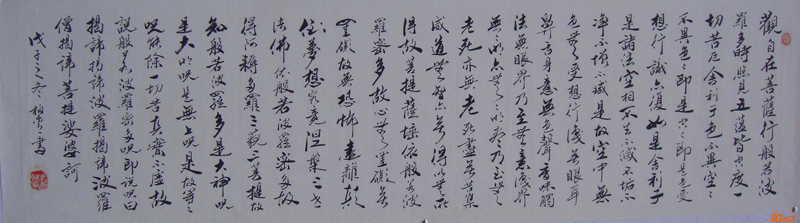 觀自在菩薩行般若波
羅多時照見五蘊皆空度一
切苦厄舍利子色不異空空
不異色色即是空空即是色受
想行識亦復如是舍利子
是諸法空相不生不滅不垢不
淨不增不減是故空中無
色無受想行識無眼耳
鼻舌身意無色聲香味觸
法無眼界乃至無意識界
無無明亦無無明盡乃至無
老死亦無老死盡無苦集
滅道無智亦無得以無所
得故菩提薩埵依般若波
羅密多故心無罣礙無
罣礙故無恐怖遠離顛
倒夢想究竟涅槃三世
諸佛依般若波羅密多故
得阿耨多羅三藐三菩提故
知般若波羅多是大神咒
是大明咒是無上咒是故等等
咒能除一切苦真實不虛故
說般若波羅密多咒即說咒曰
揭諦揭諦波羅揭諦波羅
僧揭諦菩提娑婆訶
戊子之冬 書